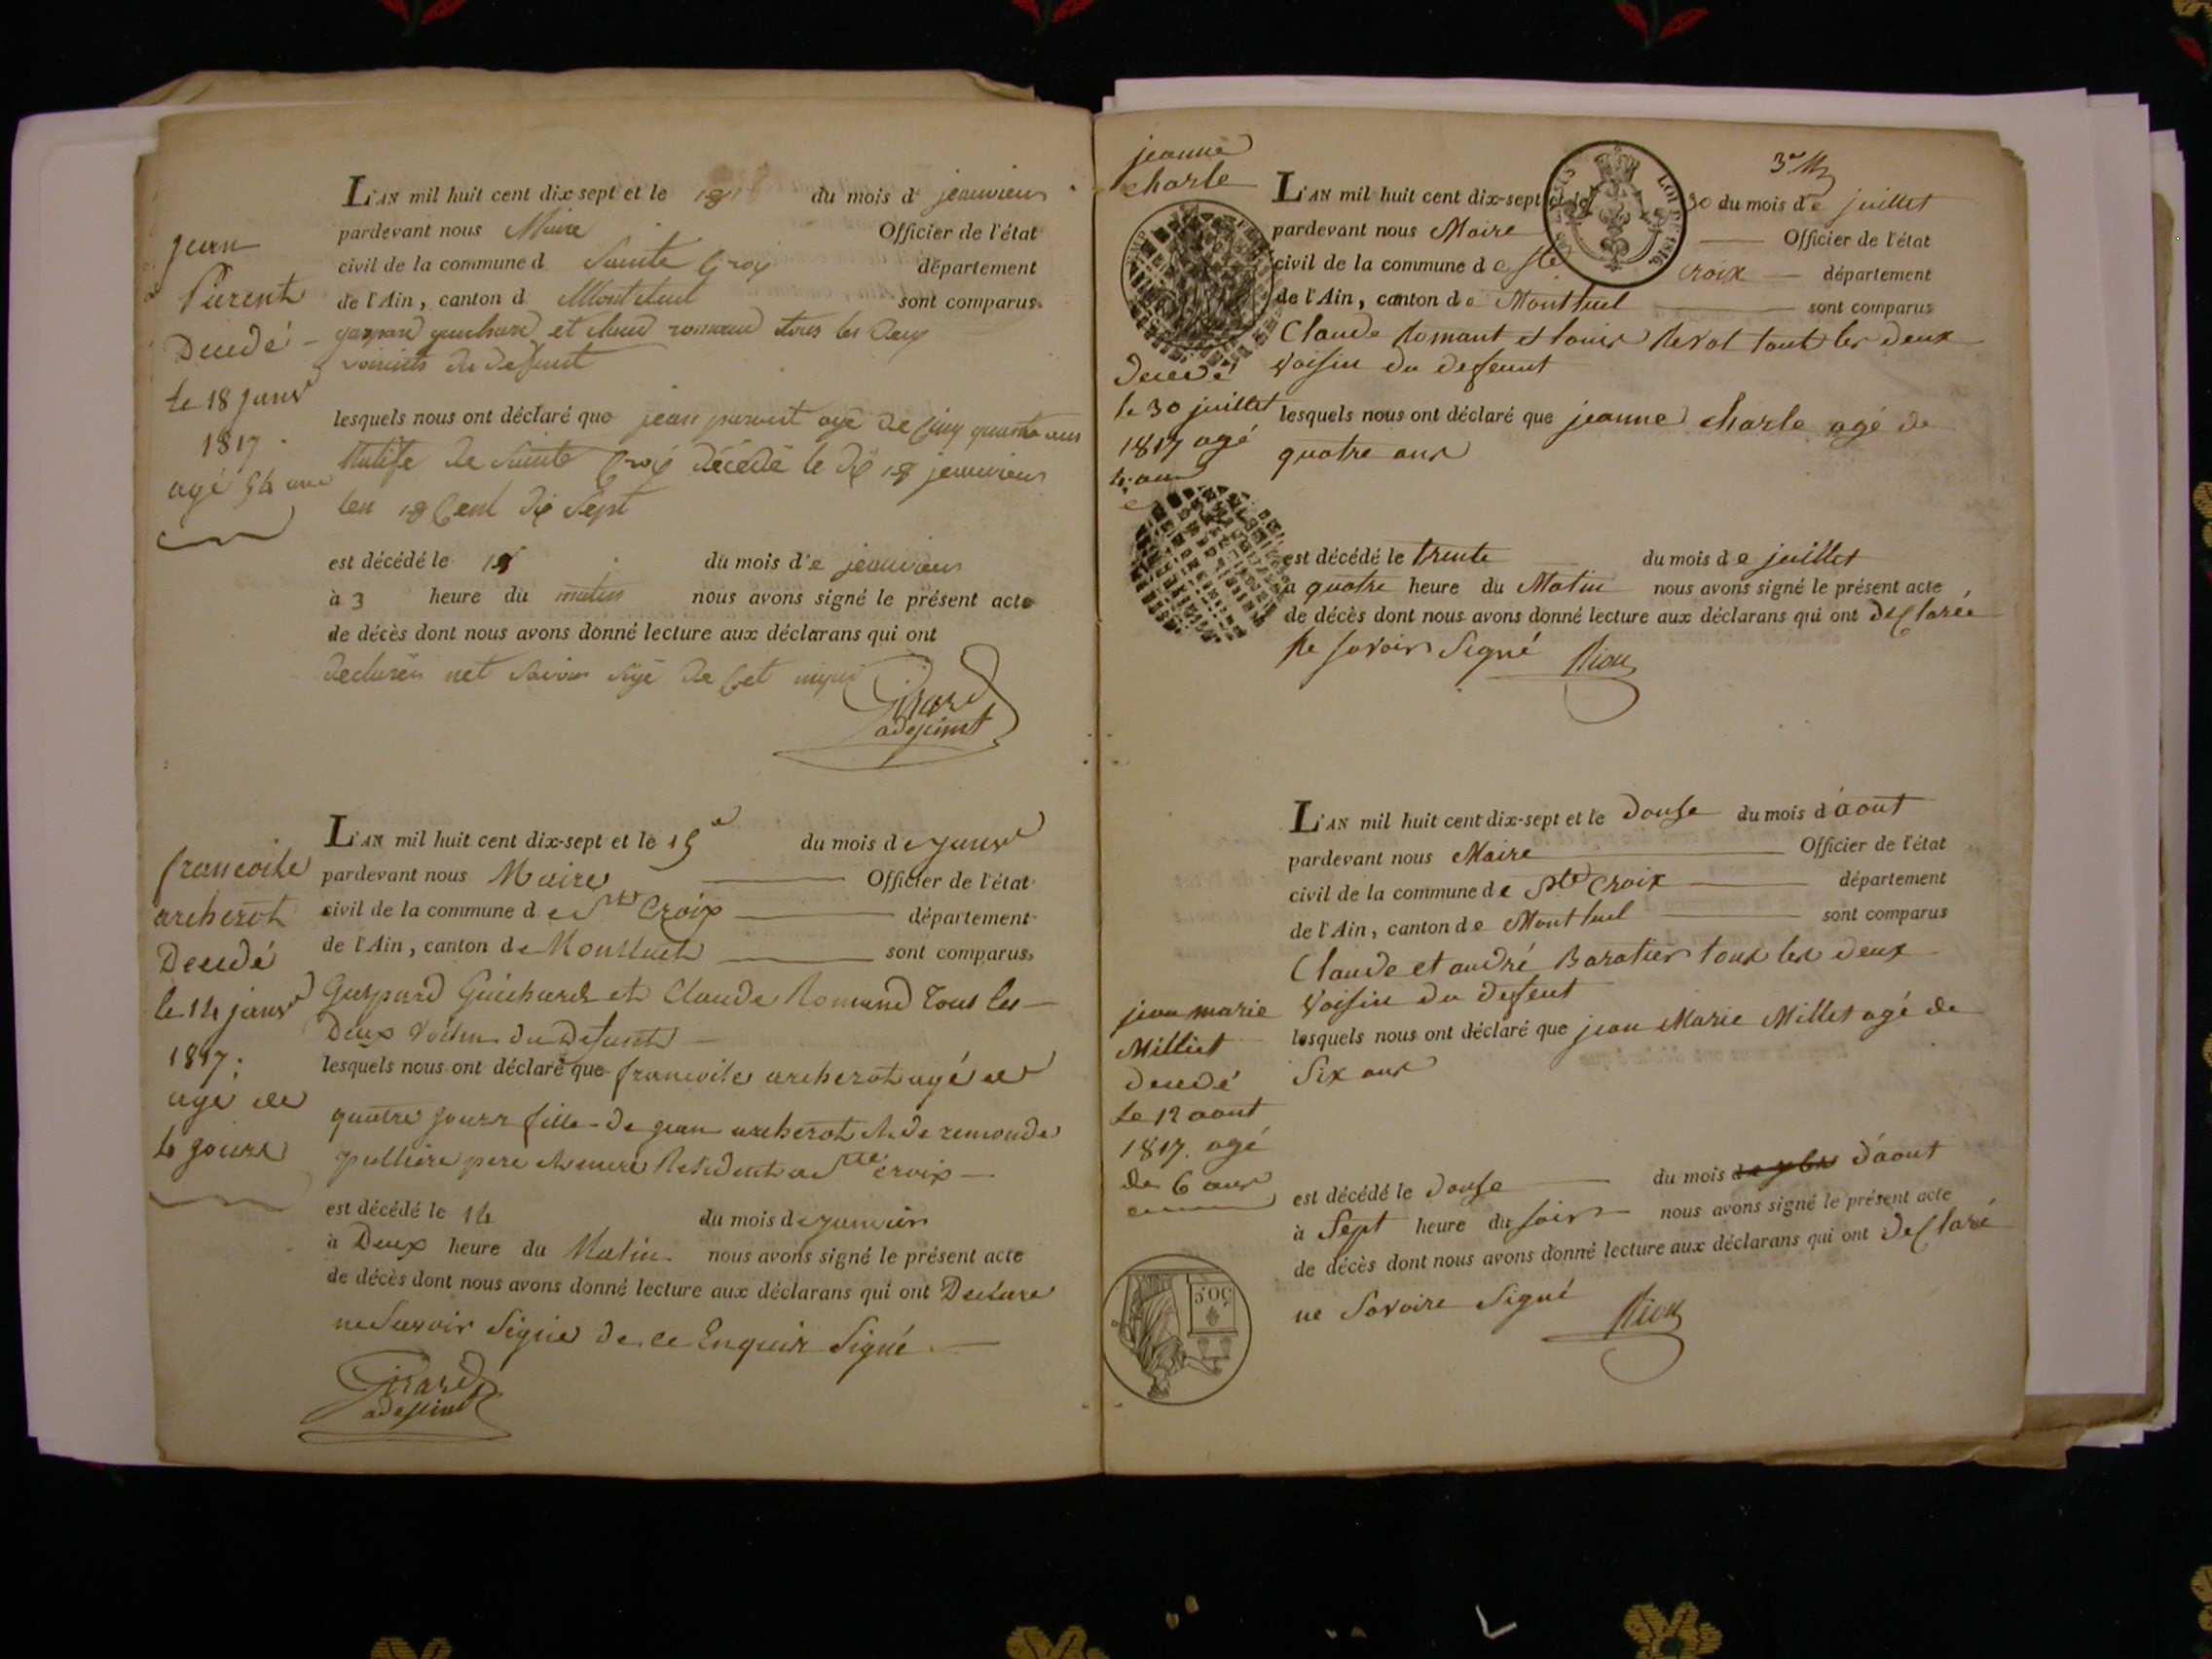 jean
Parent
Decedé
le 18 janv
1817
agé 54 ans
L'AN mil huit cent dix sept et le 18 du mois d jeanvieur
pardevant nous Maire Officier de l'état
civil de la commune d Sainte Croy département
de l'Ain, canton d Monteluel sont comparus
gaspard guichard et claud romand tous les deux
voisints du defunt
lesquels nous ont déclaré que jean parent agé de cinq quatre ans
Natife de Sainte Croy décédé le dis 18 jeanvieur
len 18 Cent dis Sept
est décédé le 18 du mois d'e jeanvieur
à 3 heure du matin nous avons signé le présent acte
de décès dont nous avons donné lecture aux déclarans qui ont
declarés net savoir de
Girard
adejoint
francoise
archerot
Decedé
le 14 janv
1817.
agé de
4 jours
L'AN mil huit cent dix-sept et le 15 du mois de janv
pardevant nous Maire Officier de l'état
civil de la commune de Ste Croix département
de l'Ain, canton de Montluel sont comparus
Gaspard Guichard et Claude Romand Tous les
Deux Voisin du Defunt
lesquels nous ont déclaré que francoise archerot agé de
quatre jours fille de jean archerot & de remonde
pere & mere Residents a Ste croix
est décédé le 14 du mois de janvier
à Deux heure du Matin nous avons signé le présent acte
de décès dont nous avons donné lecture aux déclarans qui ont Declare
ne Savoir Signé de ce Enquir Signé
Girard
adejoint
jeanne
charle
decedé
le 30 juillet
1817 agé
4 ans
3e
LOI DE 1816.
L'AN mil huit cent dix-sept et le 30 du mois de juillet
pardevant nous Maire Officier de l'état
civil de la commune de Ste Croix département
de l'Ain, canton de Montluel sont comparus
Claude Romant et louis Revol tout les deux
Voisin du defeunt
lesquels nous ont déclaré que jeanne charle agé de
quatre ans
est décédé le trente du mois de juillet
a quatre heure du Matin nous avons signé le présent acte
de décès dont nous avons donné lecture aux déclarans qui ont desclarée
Ne savoir Signé Riou
jean marie
Milliet
decedé
le 12 aout
1817. agé
de 6 ans
50C
L'AN mil huit cent dix-sept et le douse du mois d'aout
pardevant nous Maire Officier de l'état
civil de la commune de Ste Croix département
de l'Ain, canton de Montluel sont comparus
Claude et andré Baratier tous les deux
Voisin du defeut
lesquels nous ont déclaré que jean Marie Millet agé de
Six ans
est décédé le douse du mois d'aout
à Sept heure du soir nous avons signé le présent acte
de décès dont nous avons donné lecture aux déclarans qui ont desclaré
ne Savoire Signé Riou